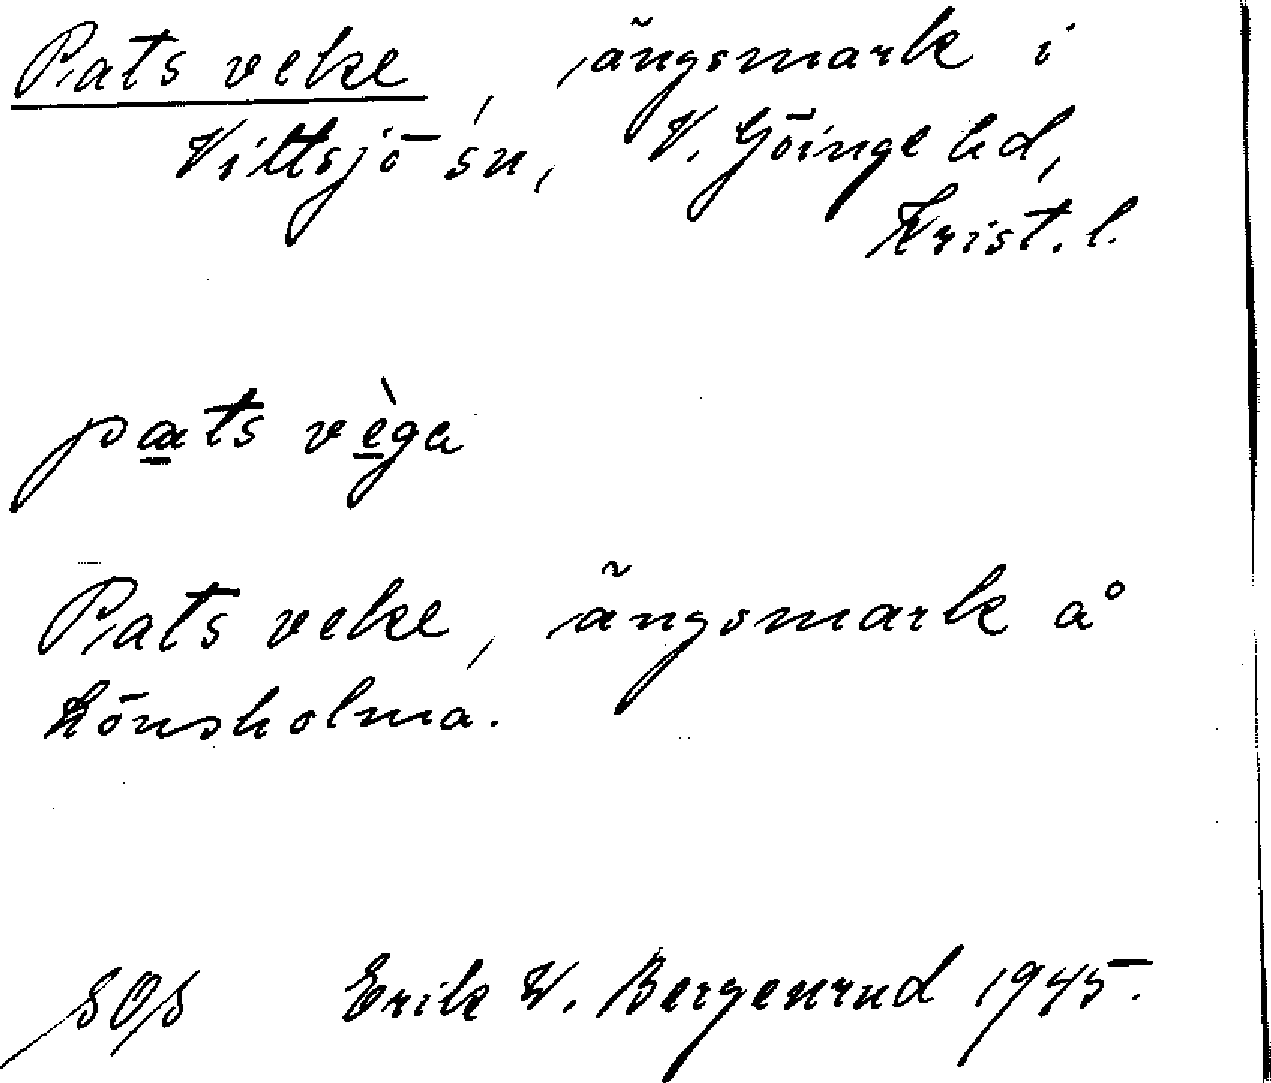 Pats veke, ängsmark i
Vittsjö sn, V. Göinge hd,
Krist. l.
pats vèga
Pats veke, ängsmark å
Lönsholma.
SOS Erik W. Bergenrud 1945.